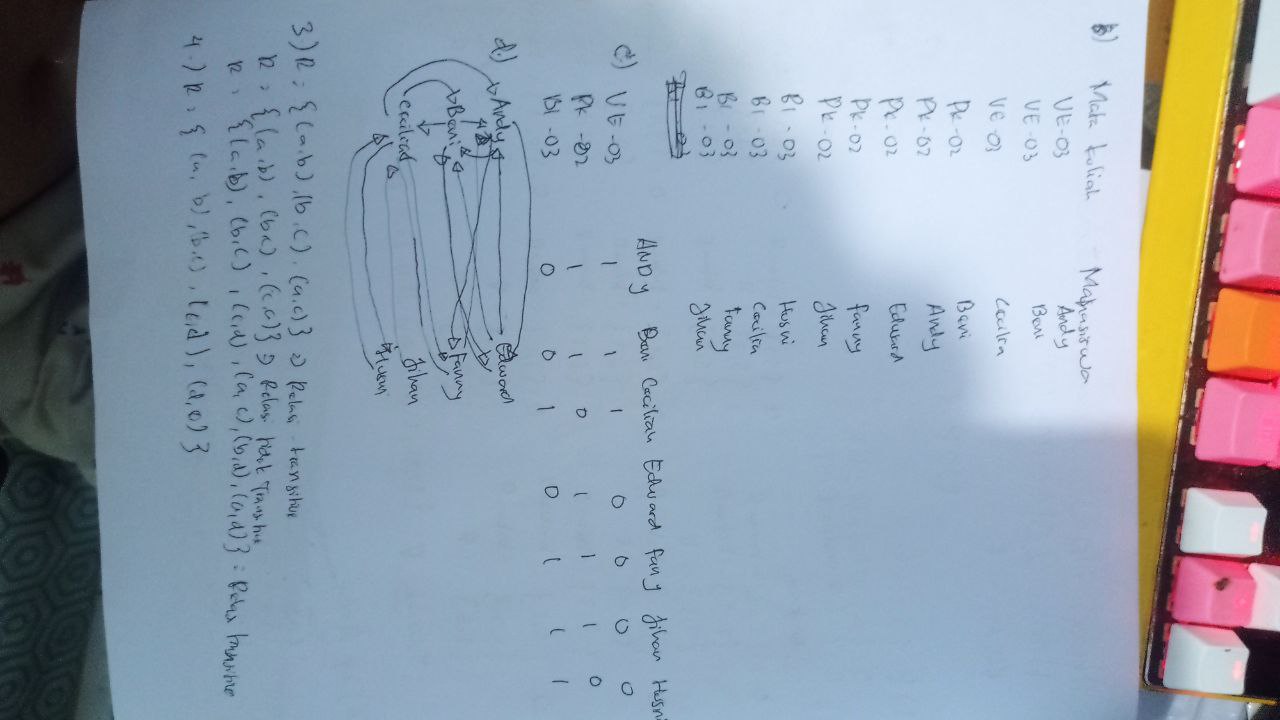 b) Mata kuliah Mahasiswa
VE-03 Andy
VE-03 Beni
VE-03 Cecilia
PK-02 Beni
PK-02 Andy
PK-02 Edward
PK-02 Fanny
PK-02 Jihan
BI-03 Husni
BI-03 Cecilia
BI-03 Fanny
BI-03 Jihan
c.) ANDY Beni Cecilian Edward Fany Jihan Husni
VE-03 1 1 1 0 0 0 0
PK-02 1 1 0 1 1 1 0
BI-03 0 0 1 0 1 1 1
d.) Andy Edward
Beni Fanny
Cecilia Jihan
Husni
3) R = {(a,b),(b,c),(a,c)} => Relasi transitive
R = {(a,b),(b,c),(c,a)} => Relasi tidak Transitive
R = {(a,b),(b,c),(c,d),(a,c),(b,d),(a,d)} = Relasi transitive
4.) R = {(a,b),(b,c),(c,d),(d,a)}